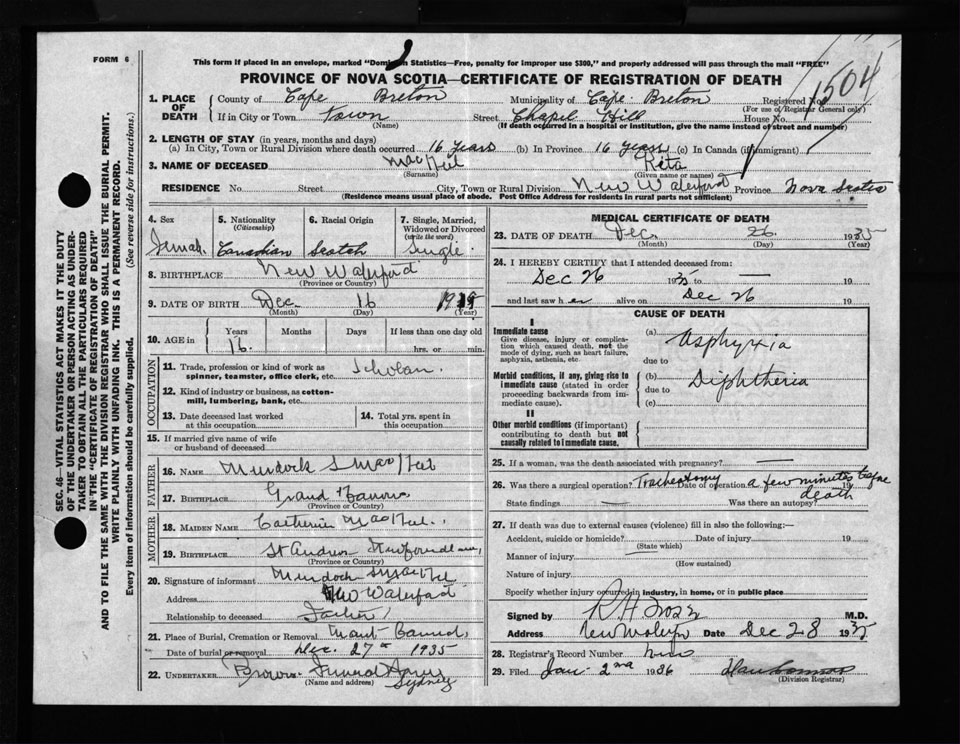 FORM 6
This form if placed in an envelope, marked "Dominion Statistics—Free, penalty for improper use $300," and properly addressed will pass through the mail "FREE"
PROVINCE OF NOVA SCOTIA—CERTIFICATE OF REGISTRATION OF DEATH
1504
1. PLACE OF DEATH
County of Cape Breton Municipality of Cape Breton Registered No.
(For use of Registrar General only)
If in City or Town Town Street Chapel Hill House No.
(Name) (If death occurred in a hospital or institution, give the name instead of street and number)
2. LENGTH OF STAY (in years, months and days)
(a) In City, Town or Rural Division where death occurred 16 Years (b) In Province 16 Years (c) In Canada (if immigrant)
3. NAME OF DECEASED MacNeil Rita
(Surname) (Given name or names)
RESIDENCE No. Street City, Town or Rural Division New Waterford Province Nova Scotia
(Residence means usual place of abode. Post Office Address for residents in rural parts not sufficient)
4. Sex Female
5. Nationality (Citizenship) Canadian
6. Racial Origin Scotch
7. Single, Married, Widowed or Divorced (write the word) Single
8. BIRTHPLACE New Waterford
(Province or Country)
9. DATE OF BIRTH Dec 16 1919
(Month) (Day) (Year)
10. AGE in Years Months Days If less than one day old
16 hrs. or min.
OCCUPATION
11. Trade, profession or kind of work as spinner, teamster, office clerk, etc. Scholar
12. Kind of industry or business, as cotton-mill, lumbering, bank, etc.
13. Date deceased last worked at this occupation
14. Total yrs. spent in this occupation
15. If married give name of wife or husband of deceased
FATHER
16. NAME Murdock S MacNeil
17. BIRTHPLACE Grand
(Province or Country)
MOTHER
18. MAIDEN NAME Catherine MacNeil
19. BIRTHPLACE St Andrews Newfoundland
(Province or Country)
20. Signature of informant Murdock S MacNeil
Address New Waterford
Relationship to deceased Father
21. Place of Burial, Cremation or Removal Mount
Date of burial or removal Dec. 27th 1935
22. UNDERTAKER Brown Funeral Home
(Name and address) Sydney
MEDICAL CERTIFICATE OF DEATH
23. DATE OF DEATH Dec. 26 1935
(Month) (Day) (Year)
24. I HEREBY CERTIFY that I attended deceased from:
Dec 26 1935 to — 19
and last saw her alive on Dec 26 19
CAUSE OF DEATH
I
Immediate cause
Give disease, injury or complication which caused death, not the mode of dying, such as heart failure, asphyxia, asthenia, etc.
(a) Asphyxia
due to
Morbid conditions, if any, giving rise to immediate cause (stated in order proceeding backwards from immediate cause).
(b) Diphtheria
due to
(c)
II
Other morbid conditions (if important) contributing to death but not causally related to immediate cause.
25. If a woman, was the death associated with pregnancy? —
26. Was there a surgical operation? Tracheotomy Date of operation a few minutes before death 19
State findings — Was there an autopsy?
27. If death was due to external causes (violence) fill in also the following:—
Accident, suicide or homicide? Date of injury 19
(State which)
Manner of injury
(How sustained)
Nature of injury
Specify whether injury occurred in industry, in home, or in public place
Signed by M.D.
Address Date Dec 28 1935
28. Registrar's Record Number
29. Filed Jan. 2nd 1936
(Division Registrar)
SEC. 46—VITAL STATISTICS ACT MAKES IT THE DUTY OF THE UNDERTAKER OR PERSON ACTING AS UNDERTAKER TO OBTAIN ALL THE PARTICULARS REQUIRED IN THE "CERTIFICATE OF REGISTRATION OF DEATH" AND TO FILE THE SAME WITH THE DIVISION REGISTRAR WHO SHALL ISSUE THE BURIAL PERMIT.
WRITE PLAINLY WITH UNFADING INK. THIS IS A PERMANENT RECORD.
Every item of information should be carefully supplied. (See reverse side for instructions.)